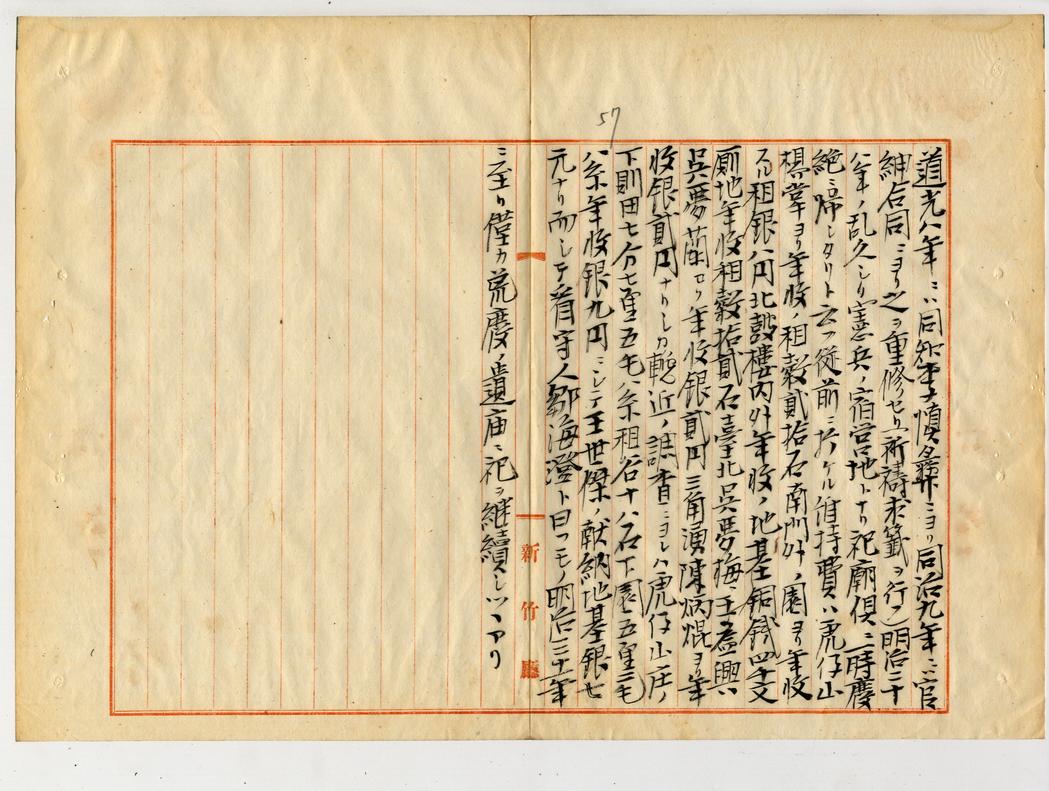 57
道光八年ニハ同知李慎彝ニヨリ同治九年ニハ官
紳合同ニヨリ之ヲ重修セリ祈禱求籤ヲ行フ明治二十
八年ノ乱久シク憲兵ノ宿営地トナリ祀廟倶ニ一時廢
絶ニ帰シタリト云フ従前ニ於ケル維持費ハ虎仔山
楊掌ヨリ年收ノ租穀貳拾石南門外ノ園ヨリ年收
スル租銀八円北鼓樓内外年收ノ地基銅銭四千文
廟地年收租穀拾貳石臺北吳夢梅王益興ハ
吳夢蘭ヨリ年收銀貳円三角湧陳炳焜ヨリ年
收銀貳円ナリシカ輓近ノ調査ニヨレハ虎仔山庄ノ
下則田七分七厘五毛八糸租谷十八石下園五厘三毛
八糸年收銀九円ニシテ王世傑ノ献納地基銀七
元ナリ而シテ看守人鄒海澄ト曰フモノ明治三十年
ニ至リ僅カ荒慶ノ遺庙ニ祀ヲ継續シツヽアリ
新竹廳